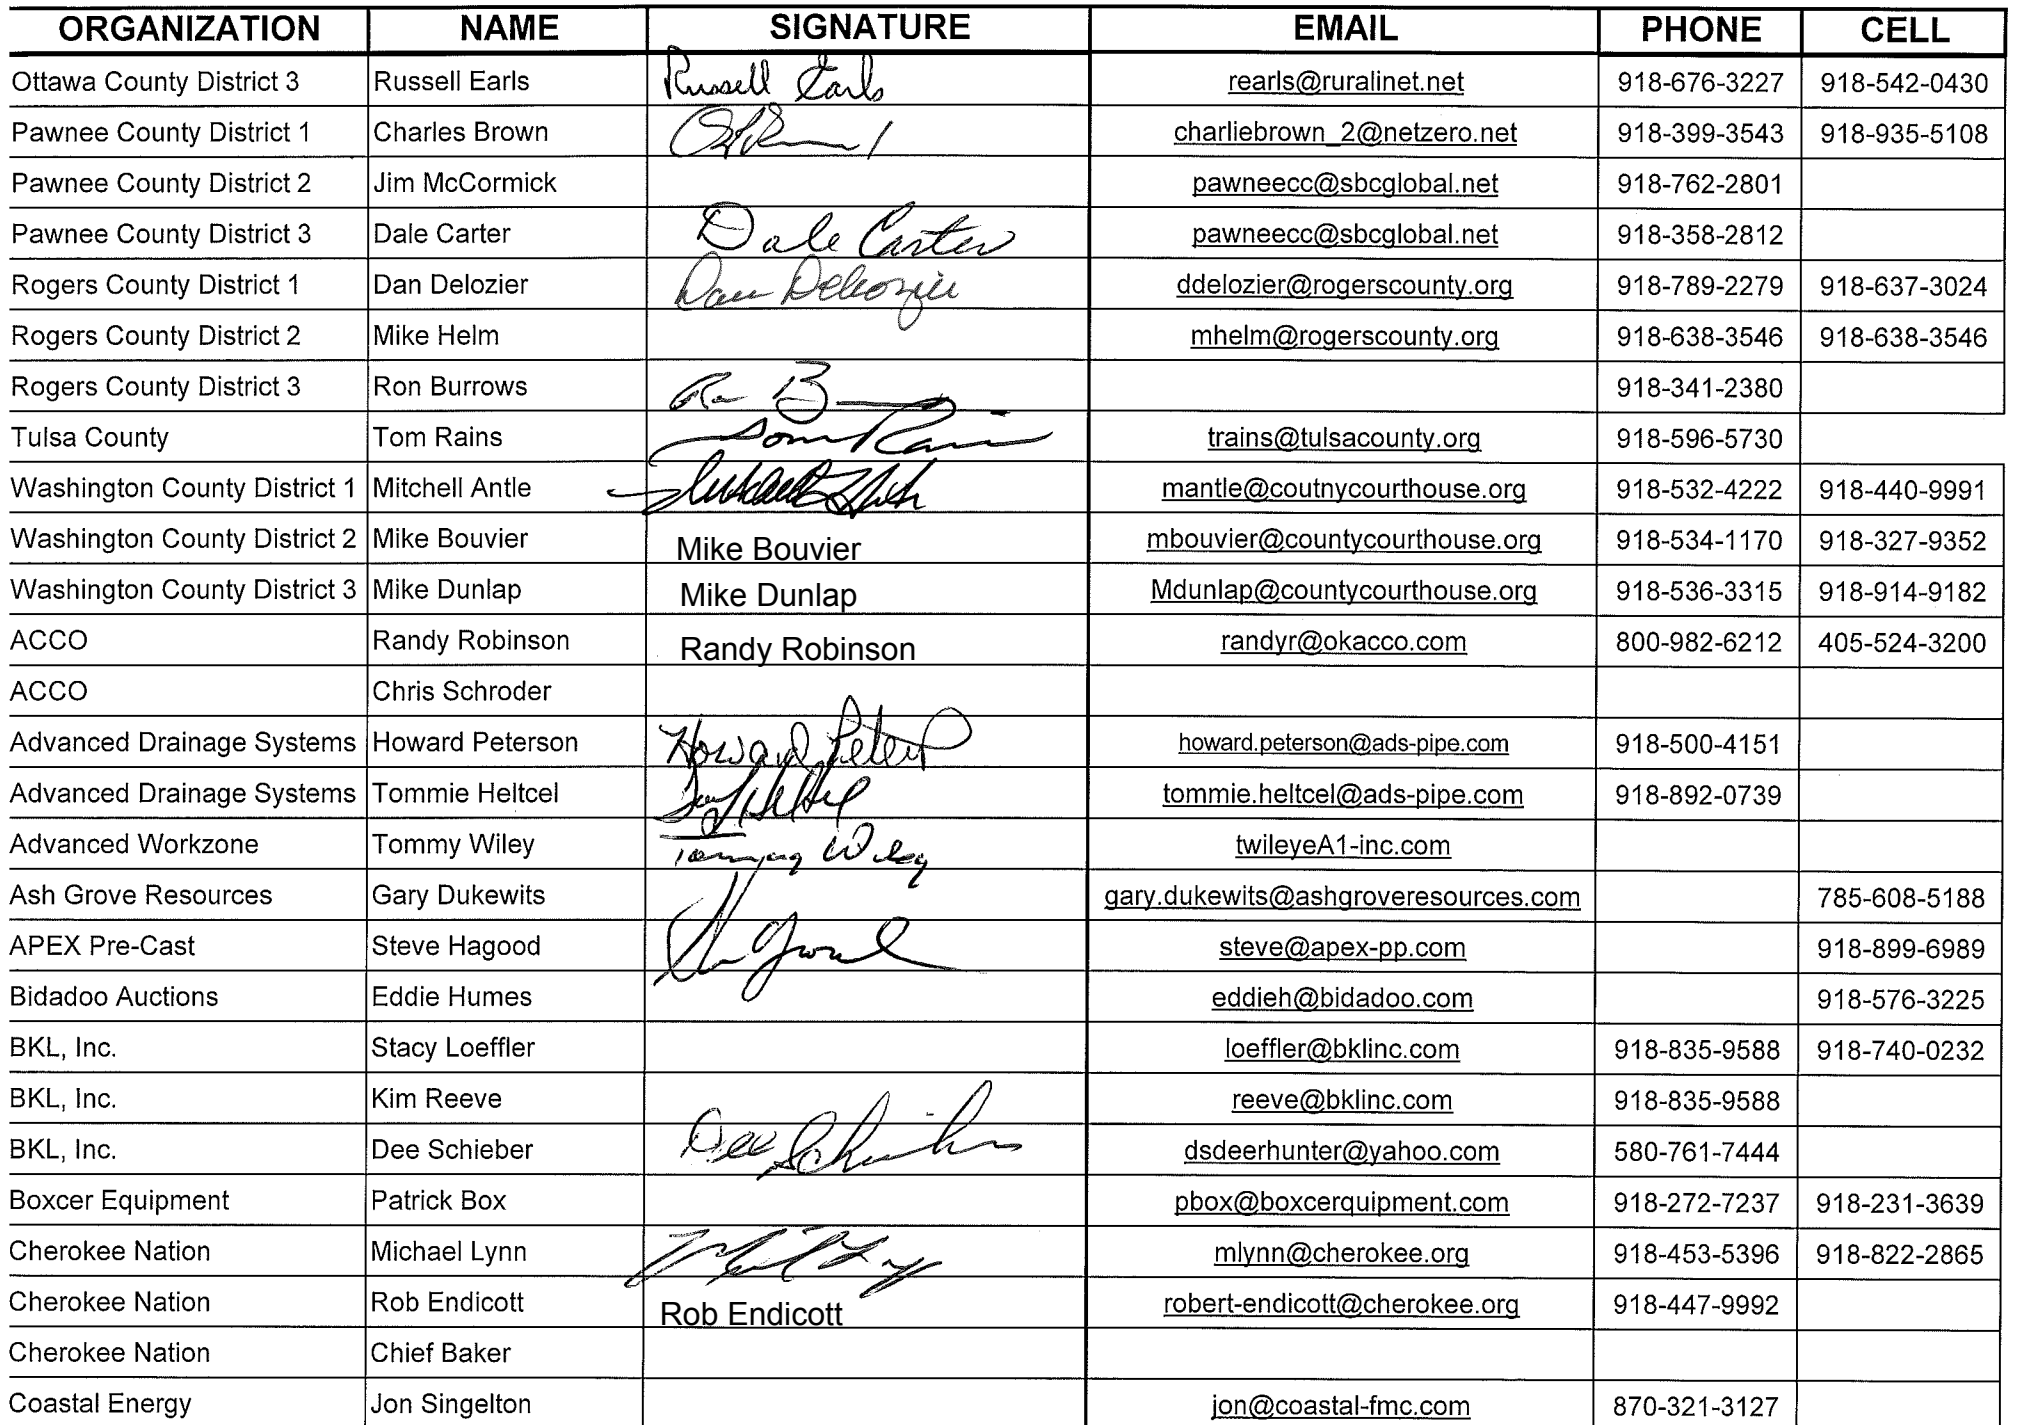 ORGANIZATION NAME SIGNATURE EMAIL PHONE CELL
Ottawa County District 3 Russell Earls Russell Earls rearls@ruralinet.net 918-676-3227 918-542-0430
Pawnee County District 1 Charles Brown charliebrown_2@netzero.net 918-399-3543 918-935-5108
Pawnee County District 2 Jim McCormick pawneecc@sbcglobal.net 918-762-2801
Pawnee County District 3 Dale Carter Dale Carter pawneecc@sbcglobal.net 918-358-2812
Rogers County District 1 Dan Delozier Dan Delozier ddelozier@rogerscounty.org 918-789-2279 918-637-3024
Rogers County District 2 Mike Helm mhelm@rogerscounty.org 918-638-3546 918-638-3546
Rogers County District 3 Ron Burrows 918-341-2380
Tulsa County Tom Rains Tom Rains trains@tulsacounty.org 918-596-5730
Washington County District 1 Mitchell Antle mantle@coutnycourthouse.org 918-532-4222 918-440-9991
Washington County District 2 Mike Bouvier Mike Bouvier mbouvier@countycourthouse.org 918-534-1170 918-327-9352
Washington County District 3 Mike Dunlap Mike Dunlap Mdunlap@countycourthouse.org 918-536-3315 918-914-9182
ACCO Randy Robinson Randy Robinson randyr@okacco.com 800-982-6212 405-524-3200
ACCO Chris Schroder
Advanced Drainage Systems Howard Peterson Howard Peterson howard.peterson@ads-pipe.com 918-500-4151
Advanced Drainage Systems Tommie Heltcel tommie.heltcel@ads-pipe.com 918-892-0739
Advanced Workzone Tommy Wiley Tommy Wiley twileyeA1-inc.com
Ash Grove Resources Gary Dukewits gary.dukewits@ashgroveresources.com 785-608-5188
APEX Pre-Cast Steve Hagood steve@apex-pp.com 918-899-6989
Bidadoo Auctions Eddie Humes eddieh@bidadoo.com 918-576-3225
BKL, Inc. Stacy Loeffler loeffler@bklinc.com 918-835-9588 918-740-0232
BKL, Inc. Kim Reeve reeve@bklinc.com 918-835-9588
BKL, Inc. Dee Schieber Dee Schieber dsdeerhunter@yahoo.com 580-761-7444
Boxcer Equipment Patrick Box pbox@boxcerquipment.com 918-272-7237 918-231-3639
Cherokee Nation Michael Lynn mlynn@cherokee.org 918-453-5396 918-822-2865
Cherokee Nation Rob Endicott Rob Endicott robert-endicott@cherokee.org 918-447-9992
Cherokee Nation Chief Baker
Coastal Energy Jon Singelton jon@coastal-fmc.com 870-321-3127